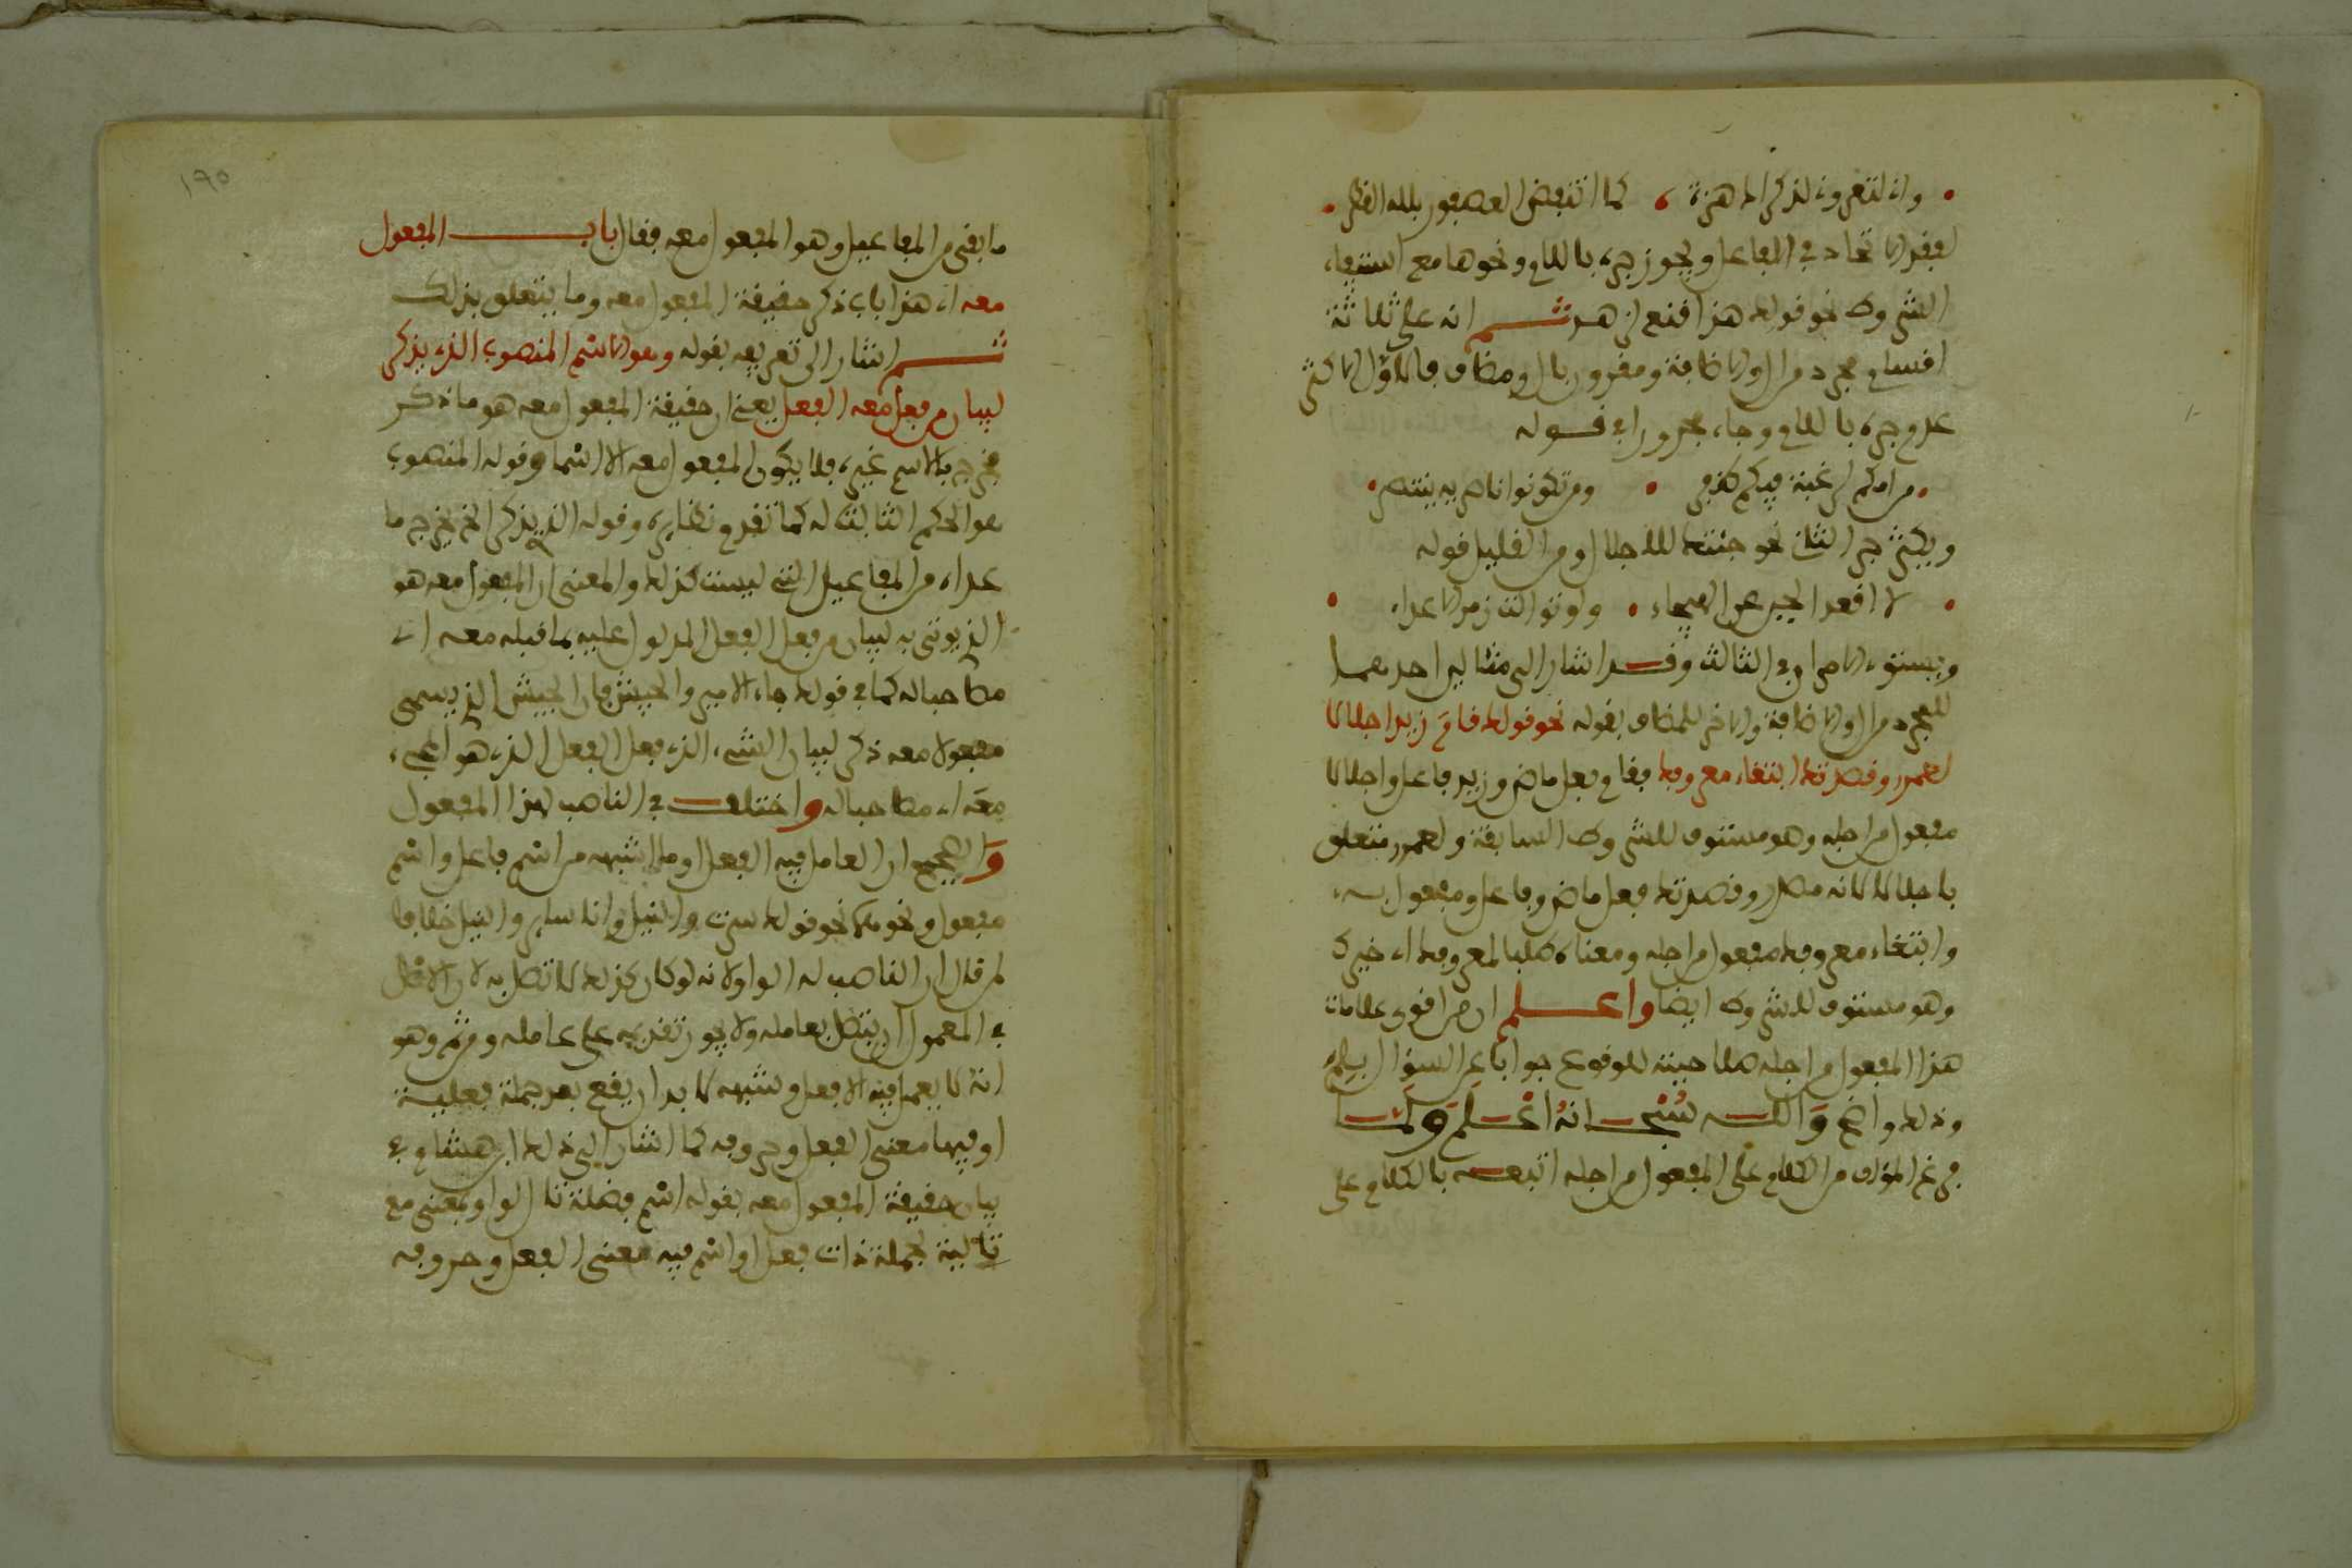 واني لتعروني لذكراك هزة كما انتفض العصفور بلله القطر
لفقد الاتحاد في الفاعل ويجوز جره باللام ونحوها مع استيفاء
الشروط نحو قولك هذا قنع لزهد ثم انه على ثلاثة
اقسام مجرد من ال والاضافة ومقرون بال ومضاف فالاول الاكثر
عدم جره باللام وجاء مجرورا في قوله
من امكم لرغبة فيكم ظفر ومن تكونوا ناصريه ينتصر
ويكثر جر الثاني نحو جئتك للاجلال ومن القليل قوله
لا اقعد الجبن عن الهيجاء ولو توالت زمر الاعداء
ويستوي الامران في الثالث وقد اشار الى مثالين احدهما
للمجرد من ال والاضافة والاخر للمضاف بقوله نحو قولك قام زيد اجلالا
لعمرو وقصدتك ابتغاء معروفك فقام فعل ماض وزيد فاعل واجلالا
مفعول من اجله وهو مستوف للشروط السابقة ولعمرو متعلق
باجلالا لانه مصدر وقصدتك فعل ماض وفاعل ومفعول به
وابتغاء معروفك مفعول من اجله ومعناه طلبا لمعروفك اي خيرك
وهو مستوف للشروط ايضا واعلم ان من اقوى علامات
هذا المفعول من اجله صلاحيته للوقوع جوابا عن السؤال بلم
وذلك واضح والله سبحانه اعلم ولما
فرغ المؤلف من الكلام على المفعول من اجله اتبعه بالكلام على
١٩٥
ما بقي من المفاعيل وهو المفعول معه فقال باب المفعول
معه اي هذا باب ذكر حقيقة المفعول معه وما يتعلق بذلك
ثم اشار الى تعريفه بقوله وهو الاسم المنصوب الذي يذكر
لبيان من فعل معه الفعل يعني ان حقيقة المفعول معه هو ما ذكر
فخرج بالاسم غيره فلا يكون المفعول معه الا اسما وقوله المنصوب
هو الحكم الثابت له كما تقدم نظايره وقوله الذي يذكر الخ يخرج ما
عداه من المفاعيل التي ليست كذلك والمعنى ان المفعول معه هو
الذي يوتى به لبيان من فعل الفعل المدلول عليه بما قبله معه اي
مصاحبا له كما في قولك جاء الامير والجيش فان الجيش الذي يسمى
مفعولا معه ذكر لبيان الشيء الذي فعل الفعل الذي هو المجيء
معه اي مصاحبا له واختلف في الناصب لهذا المفعول
والصحيح ان العامل فيه الفعل او ما اشبهه من اسم فاعل واسم
مفعول ونحوهما نحو قولك سرت والنيل وانا ساير والنيل خلافا
لمن قال ان الناصب له الواو لانه لو كان كذلك لاتصل به لان الاصل
في المعمول ان يتصل بعامله ولا يجوز تقديمه على عامله ومن ثم وهو
انه لا يعمل فيه الا فعل وشبهه لا بد ان يقع بعد جملة فعلية
او فيها معنى الفعل وحروفه كما اشار الى ذلك ابن هشام في
بيان حقيقة المفعول معه بقوله اسم فضلة تال لواو بمعنى مع
تالية لجملة ذات فعل او اسم فيه معنى الفعل وحروفه